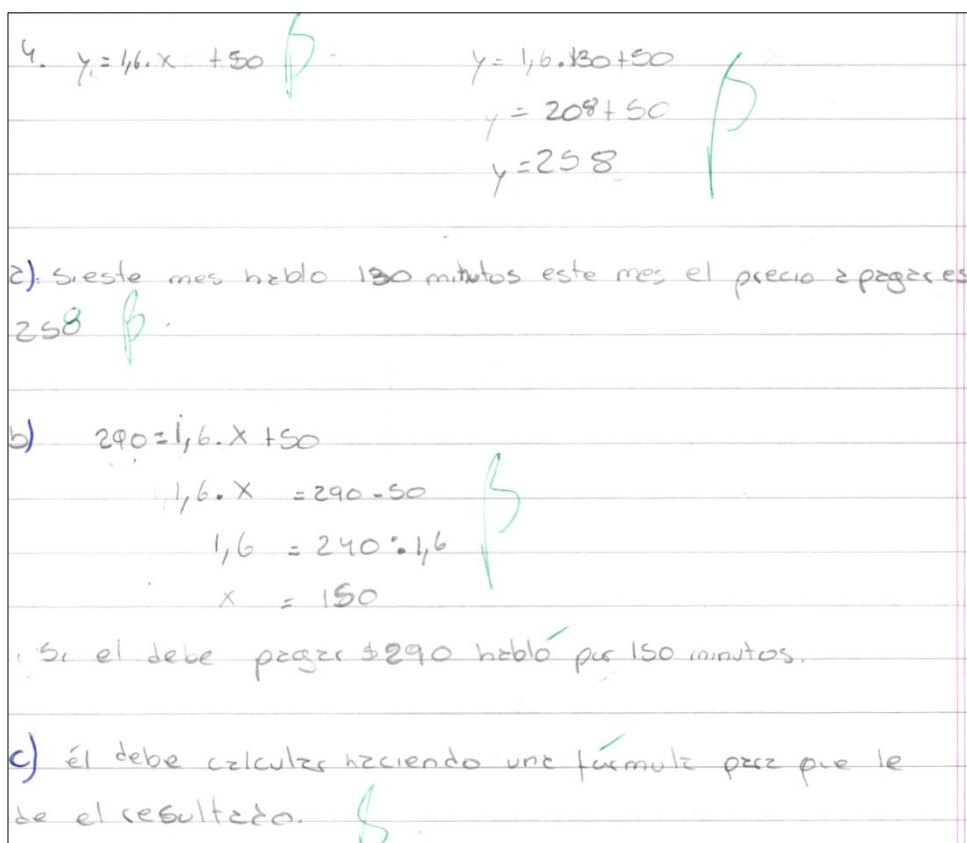 4. y = 1,6.x +50
y = 1,6.130+50
y = 208+50
y = 258
a). Si este mes hablo 130 minutos este mes el precio a pagar es
258
b) 290 = 1,6.x +50
1,6.x = 290-50
1,6 = 240:1,6
x = 150
Si el debe pagar $290 habló por 150 minutos.
c) él debe calcular haciendo una fórmula para que le
de el resultado.